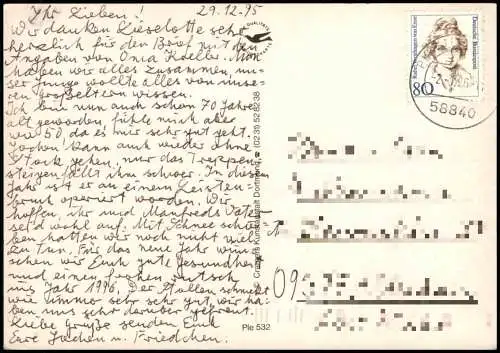 Ihr Lieben! 29.12.95
Wir danken Lieselotte sehr
herzlich für den Brief mit den
Angaben von Onca Koeller. Nun
haben wir alles zusammen, un-
ser Junge wollte alles von uns-
eren Großeltern wissen.
Ich bin nun auch schon 70 Jahre
alt geworden, fühle mich aber
wie 50 da es mir sehr gut geht.
Jochen kann auch wieder ohne
Stock gehen, nur das Treppen-
steigen fällt ihm schwer. In diesem
Jahr ist er an einem Leisten-
bruch operiert worden. Wir
hoffen, ihr und Manfreds Vater
seid wohl auf. Mit Schnee schie-
ben hatten wir noch nicht viel
zu tun. Für das neue Jahr wün-
schen wir Euch gute Gesundheit
und einen frohen Rutsch
ins Jahr 1996. Der Stollen schmeckt
wie immer sehr sehr gut, wir ha-
ben uns sehr darüber gefreut.
Liebe Grüße senden Euch
Eure Jochen u. Friedchen.
Cramers Kunstanstalt Dortmund (02 31) 52 82 38
Ple 532
Rahel Varnhagen von Ense
Deutsche Bundespost
80
58840
09